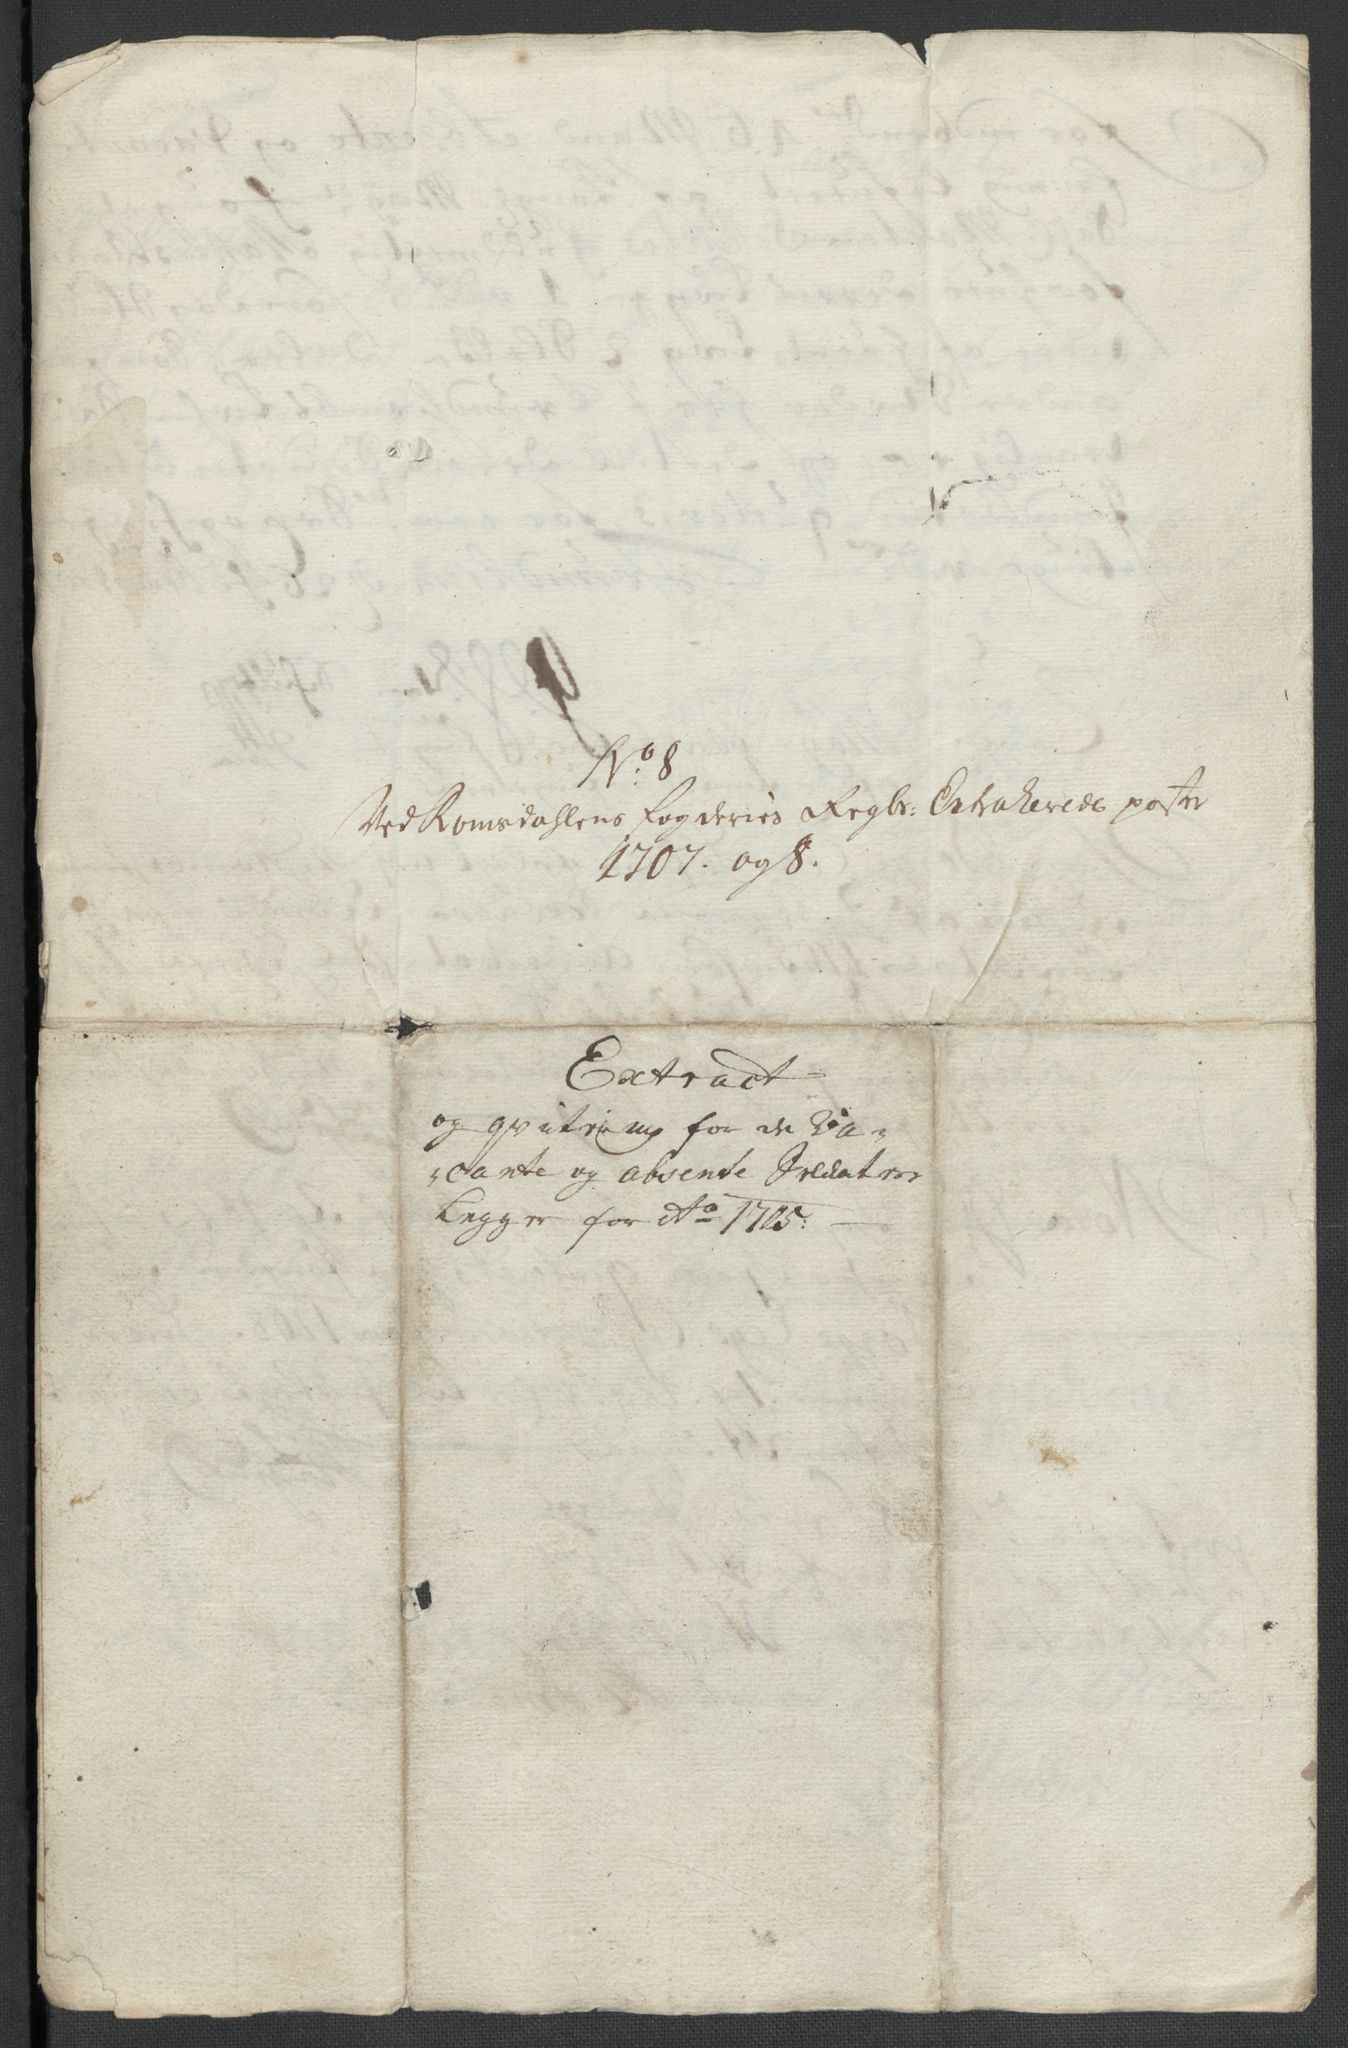 No. 8
Ved Romsdahlens fogderies Regbr: Extraherede poster
1707. og 8.
Extract
og qviterung for de Va-
cante og absente Soldater
Legger for Ao 1705: